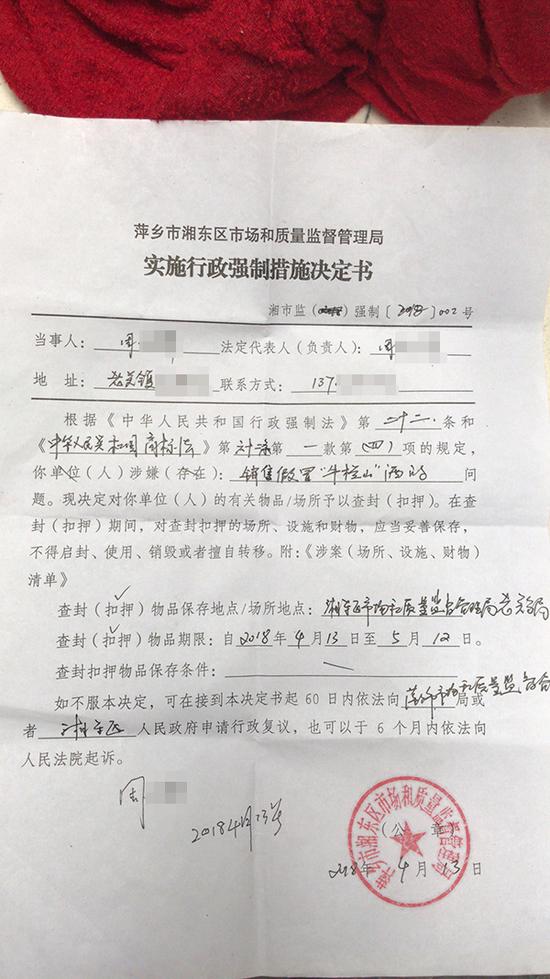 萍乡市湘东区市场和质量监督管理局
实施行政强制措施决定书
湘市监()强制〔2018〕002号
当事人：周 法定代表人（负责人）：周
地 址：老关镇 联系方式：137
根据《中华人民共和国行政强制法》第二十二条和
《中华人民共和国商标法》第六十二条第一款第(四)项的规定，
你单位（人）涉嫌（存在）：销售假冒“牛栏山”酒的 问
题。现决定对你单位（人）的有关物品/场所予以查封（扣押）。在查
封（扣押）期间，对查封扣押的场所、设施和财物，应当妥善保存，
不得启封、使用、销毁或者擅自转移。附：《涉案（场所、设施、财物）
清单》
查封（扣押）物品保存地点/场所地点：湘东区市场和质量监督管理局老关分局
查封（扣押）物品期限：自2018年4月13日至5月12日。
查封扣押物品保存条件：
如不服本决定，可在接到本决定书起60日内依法向萍乡市市场和质量监督管理局或
者湘东区人民政府申请行政复议，也可以于6个月内依法向
人民法院起诉。
周
2018年4月13号
（公 章）
2018年4月13日
萍乡市湘东区市场和质量监督管理局